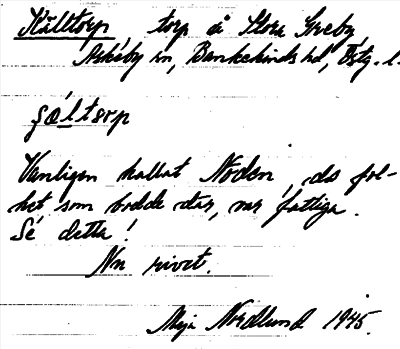 Källtorp torp å Stora Greby,
Askeby sn, Bankekinds hd, Östg. l.
Vanligen kallat Noden, då fol-
ket som bodde där, var fattiga.
Se detta!
Nu rivet.
Maja Nordlund 1945.